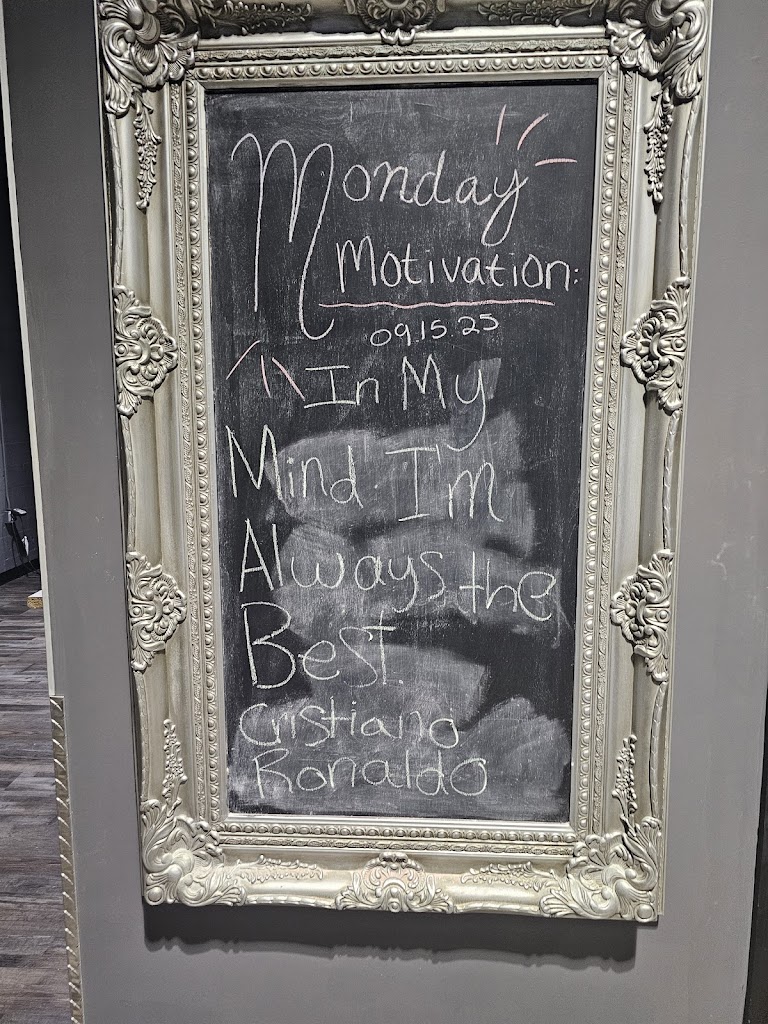 Monday
Motivation:
09.15.25
In My
Mind I'm
Always the
Best
Cristiano
Ronaldo